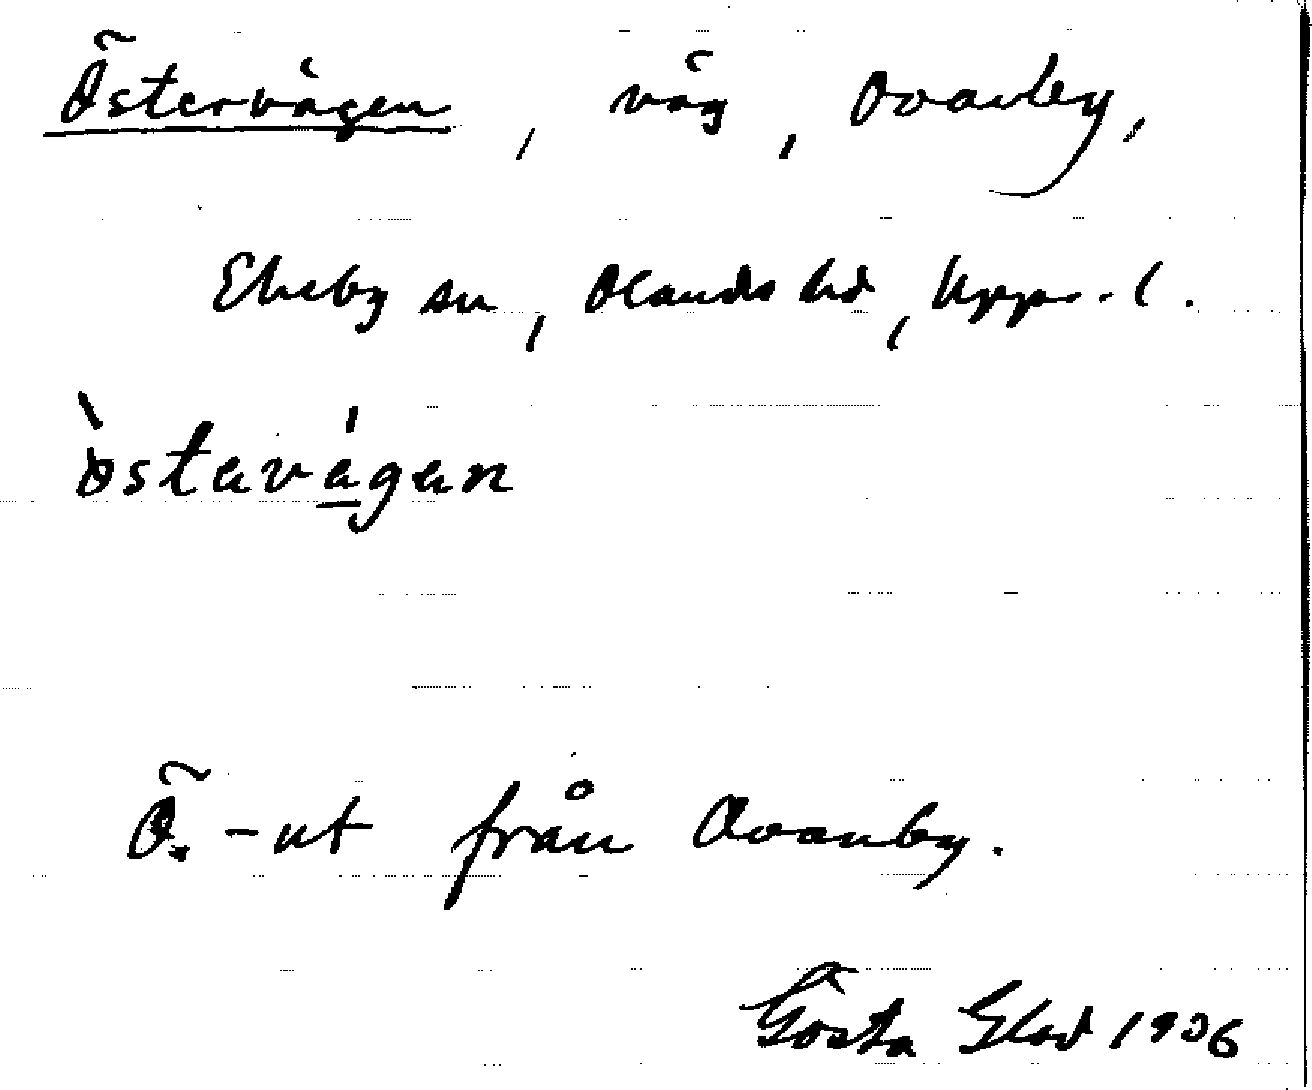 Östervägen, väg, Ovanby,
Ekeby sn, Olands hd, Upps. l.
östavägan
Ö. -ut från Ovanby.
Gösta Glad 1936